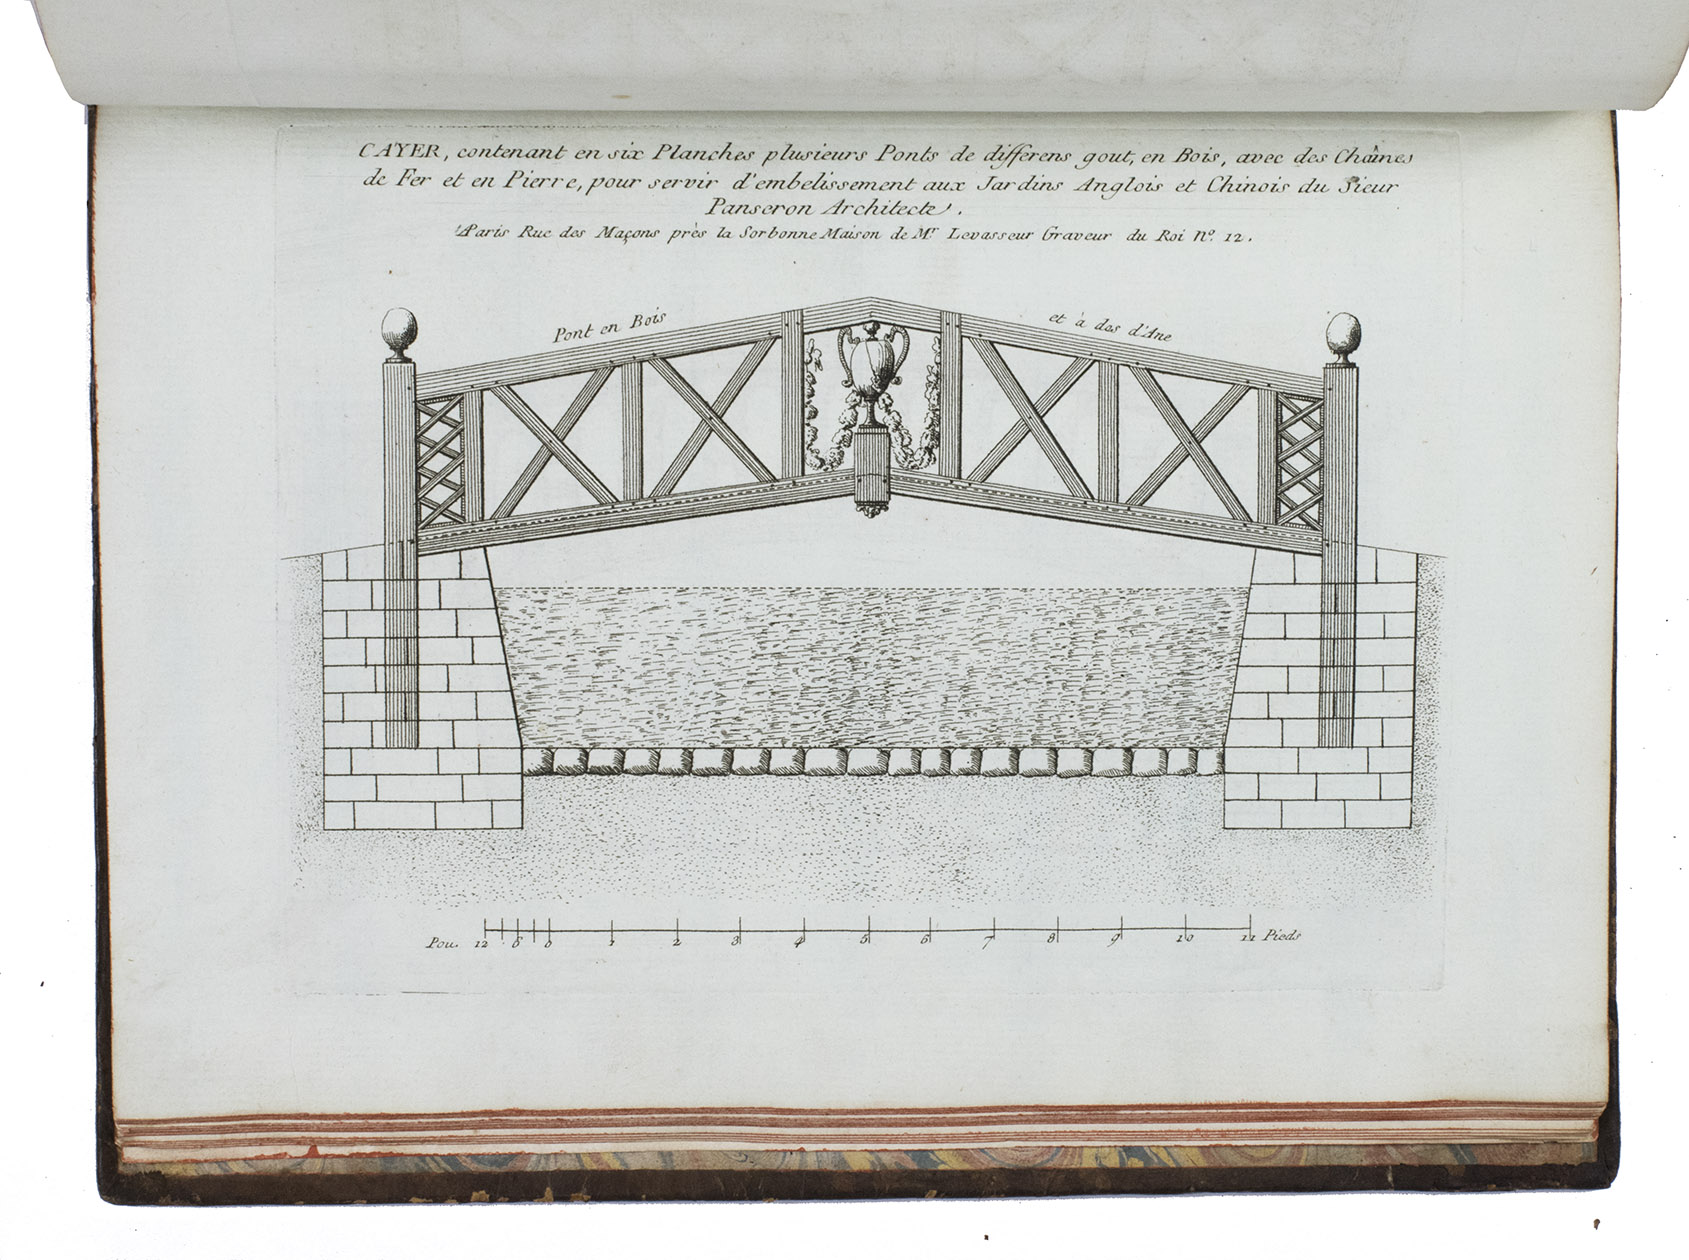 CAYER, contenant en six Planches plusieurs Ponts de differens gout, en Bois, avec des Chaînes
de Fer et en Pierre, pour servir d'embelissement aux Jardins Anglois et Chinois du Sieur
Panseron Architecte.
A Paris Rue des Maçons près la Sorbonne Maison de Mr Levasseur Graveur du Roi No. 12.
Pont en Bois et à dos d'Ane
Pou. 12 6 0 1 2 3 4 5 6 7 8 9 10 11 Pieds